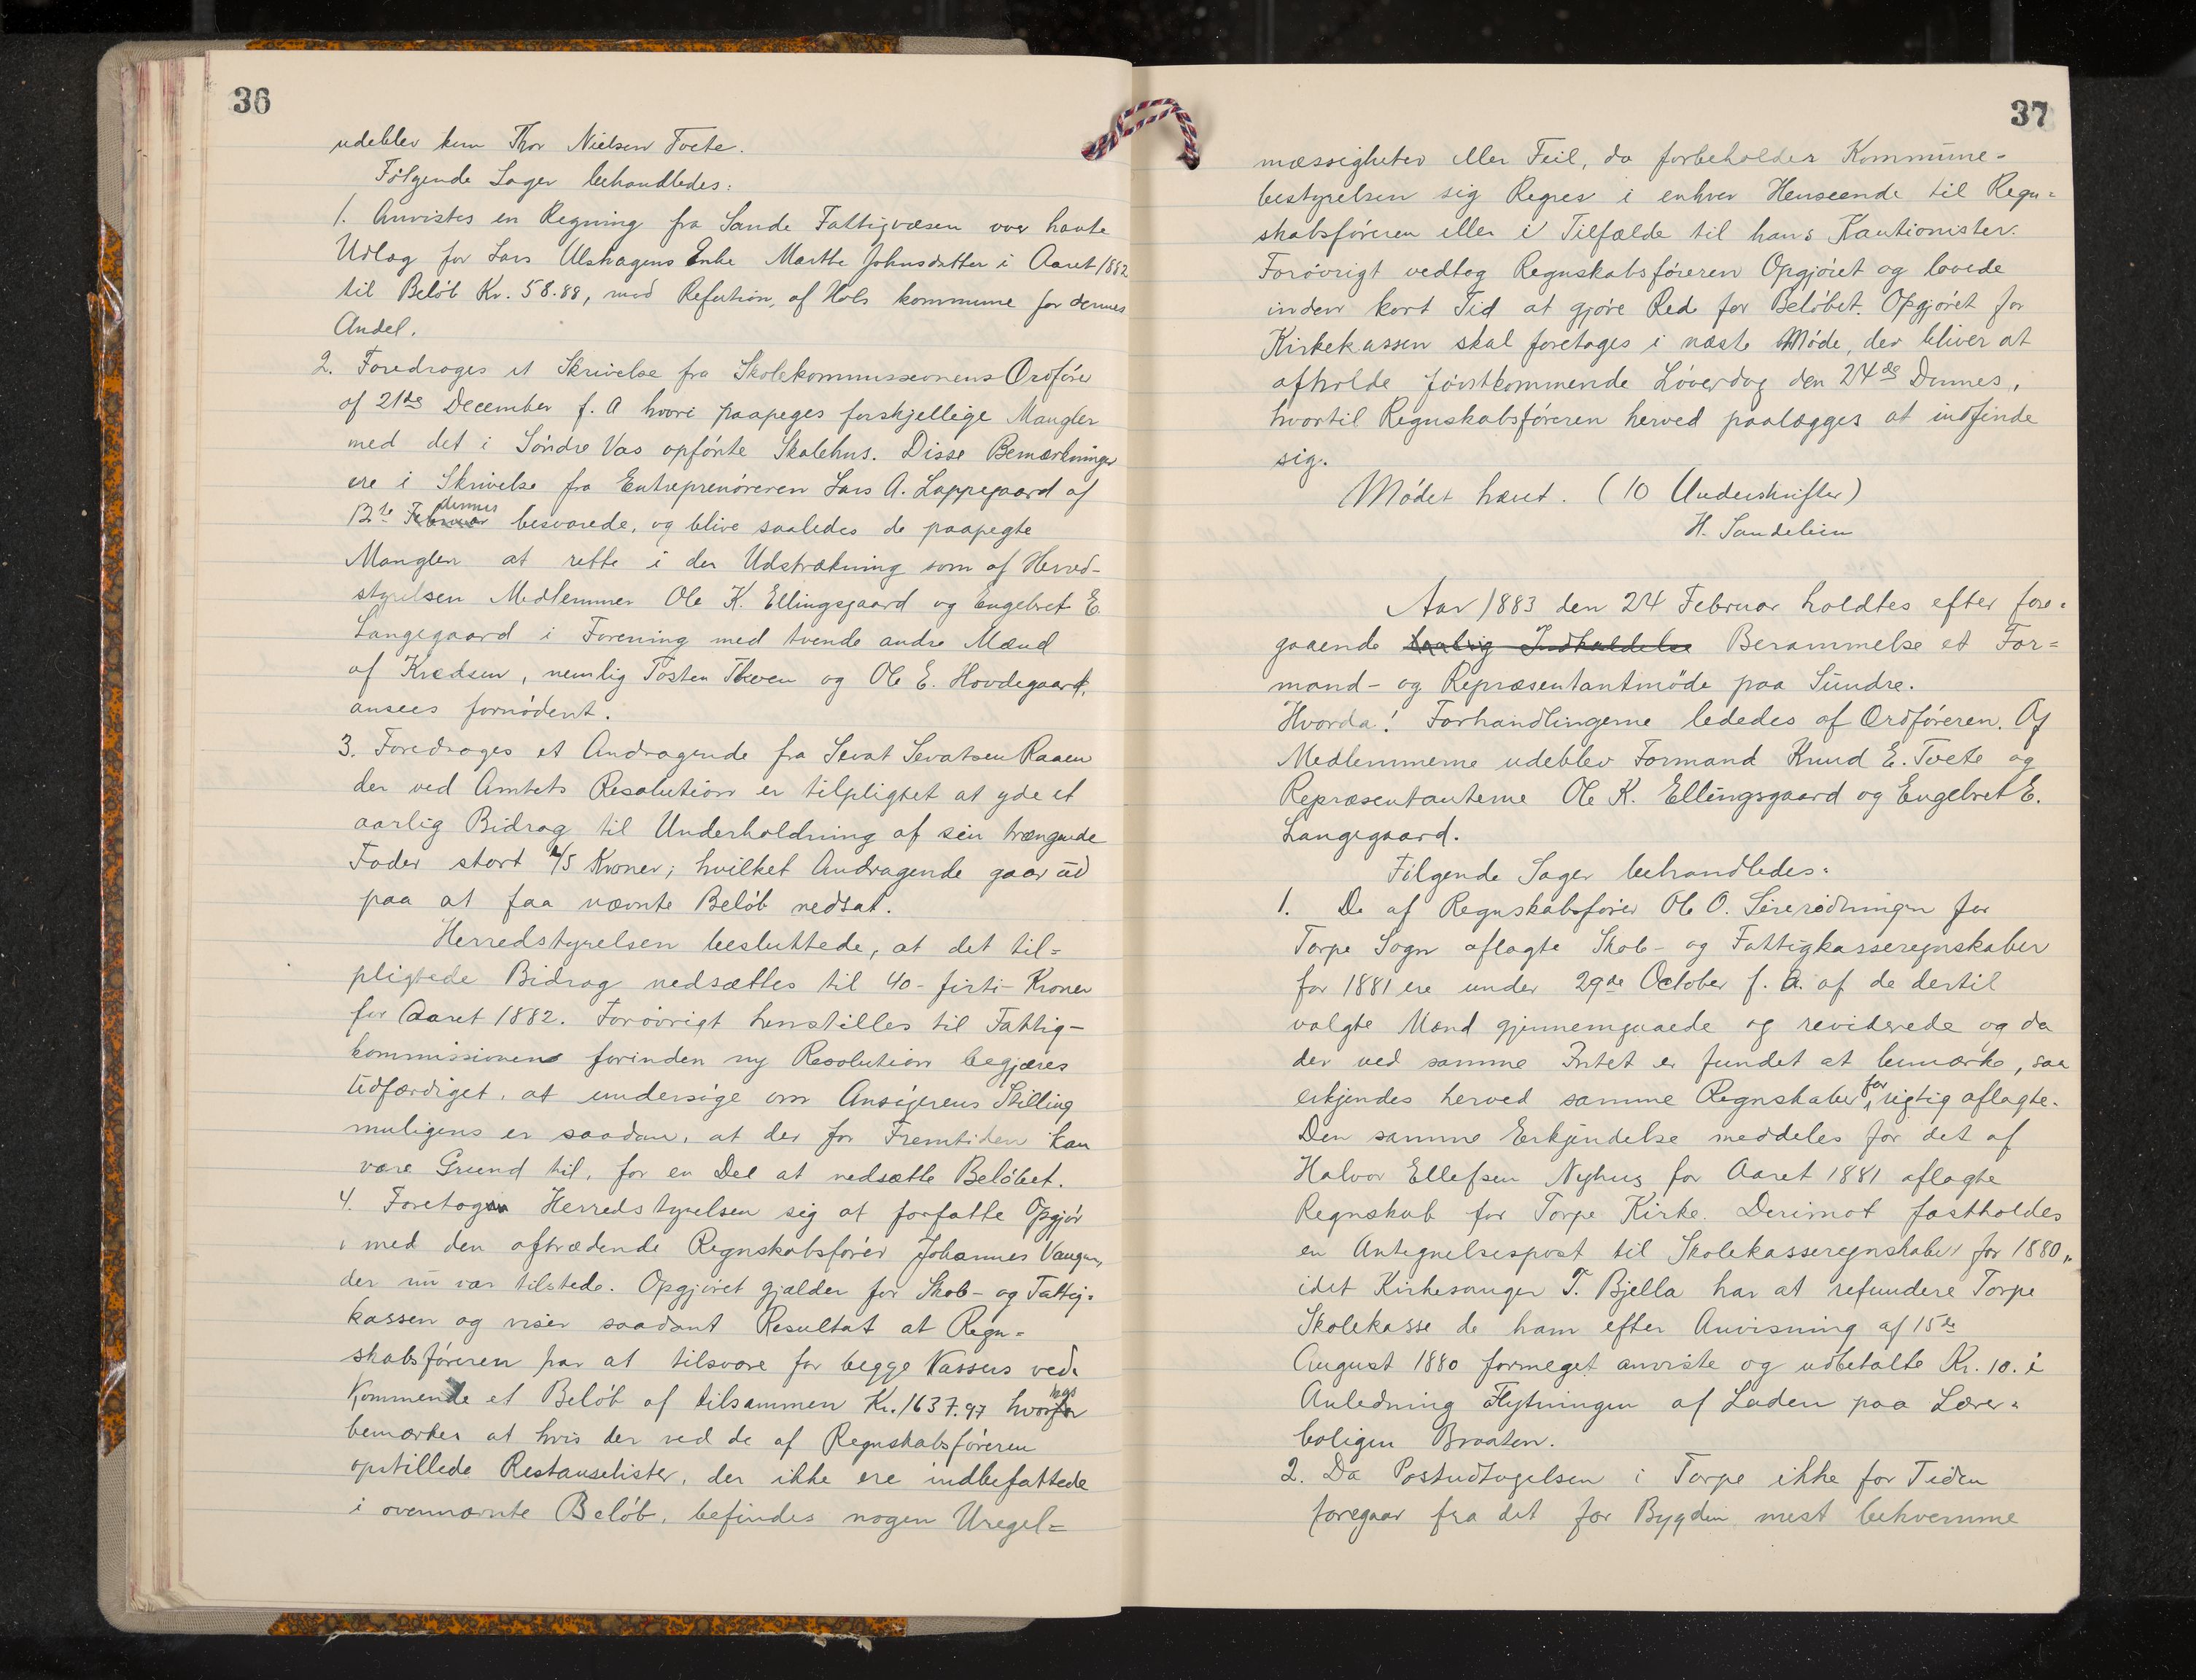 36
udeblev kun Thor Nielsen Tvete.
Følgende Sager behandledes:
1. Anvistes en Regning fra Sande Fattigvæsen over havte
Udlæg for Lars Ulshagens Enke Marthe Johnsdatter i Aaret 1882
til Beløb Kr. 58.88, mod Refution, af Hols kommune for dennes
Andel.
2. Foredroges et Skrivelse fra Skolekommissionens Ordfører
af 21de December f. A hvori paapeges forskjellige Mangler
med det i Søndre Vas opførte Skolehus. Disse Bemærkninger
ere i Skrivelse fra Entreprenøreren Lars A. Lappegaard af
13te Februar dennes besvarede, og blive saaledes de paapegte
Mangler at rette i den Udstrækning som af Herred-
styrelsen Medlemmer Ole K. Ellingsgaard og Engebret E.
Langegaard i Forening med tvende andre Mænd
af Kredsen, nemlig Tosten Thoen og Ole E. Hovdegaard,
ansees fornødent.
3. Foredroges et Andragende fra Sevat Sevatsen Raaen
der ved Amtets Resolution er tilpligtet at yde et
aarlig Bidrag til Underholdning af sin trængende
Fader stort 45 Kroner; hvilket Andragende gaar ud
paa at faa nævnte Beløb nedsat.
Herredstyrelsen besluttede, at det til=
pligtede Bidrag nedsættes til 40 - firti - Kroner
for Aaret 1882. Forøvrigt henstilles til Fattig-
kommissionen forinden ny Resolution begjæres
udfærdiget, at undersøge om Ansøgerens Stilling
muligens er saadan, at der for Fremtiden kan
være Grund til, for en Del at nedsætte Beløbet.
4. Foretog Herredstyrelsen sig at forfatte Opgjør
med den aftrædende Regnskabsfører Johannes Vangen,
der nu var tilstede. Opgjøret gjælder for Skole- og Fattig=
kassen og viser saadant Resultat at Regn=
skabsføreren har at tilsvare for begge Kassers ved=
kommende et Beløb af tilsammen Kr. 1637.97 hvorhos
bemærkes at hvis der ved de af Regnskabsføreren
opstillede Restanselister, der ikke ere indbefattede
i ovennævnte Beløb, befindes nogen Uregel=
37
mæssigheter eller Feil, da forbeholder Kommune=
bestyrelsen sig Regres i enhver Henseende til Regn=
skabsføreren eller i Tilfælde til hans Kautionister.
Forøvrigt vedtog Regnskabsføreren Opgjøret og lovede
inden kort Tid at gjøre Red for Beløbet. Opgjøret for
Kirkekassen skal foretages i næste Møde, der bliver at
afholde førstkommende Løverdag den 24de Dennes,
hvortil Regnskabsføreren herved paalægges at indfinde
sig.
Mødet hævet. (10 Underskrifter)
H. Sandelien
Aar 1883 den 24 Februar holdtes efter fore=
gaaende lovlig Indkaldelse Berammelse et For=
mand- og Repræsentantmøde paa Sundre.
Hvorda! Forhandlingerne lededes af Ordføreren. Af
Medlemmerne udeblev Formand Knud E. Tvete og
Repræsentanterne Ole K. Ellingsgaard og Engebret E.
Langegaard.
Følgende Sager behandledes:
1. De af Regnskabsfører Ole O. for
Torpe Sogn aflagte Skole- og Fattigkasseregnskaber
for 1881 ere under 29de October f. A. af de dertil
valgte Mænd gjennemgaaede og reviderede og da
der ved samme Intet er fundet at bemærke, saa
erkjendes herved samme Regnskaber for rigtig aflagte.
Den samme Erkjendelse meddeles for det af
Halvor Ellefsen Nyhus for Aaret 1881 aflagte
Regnskab for Torpe Kirke. Derimot fastholdes
en Antegnelsespost til Skolekasseregnskabet for 1880,
idet Kirkesanger T. Bjella har at refundere Torpe
Skolekasse de ham efter Anvisning af 15de
August 1880 formeget anviste og udbetalte Kr. 10. i
Anledning Flytningen af Laden paa Lærer=
boligen Braaten.
2. Da Postudtagelsen i Torpe ikke for Tiden
foregaar fra det for Bygden mest bekvemme